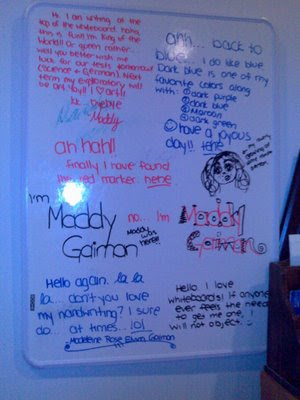 Hi. I am writing at the
top of the whiteboard. haha,
this is fun! I'm King of the
World! Or queen rather...
well you better wish me
luck for our tests tomorrow!
(Science + German). Next
term my exploratory will
be art. Yay!! I ♡ art!!
k.. byebye
Maddy
ah hah!!
finally I have found
the red marker. hehe
I'm
Maddy
Gaiman
no... I'm
Maddy
Gaiman
Maddy
was
here!!
Hello again. la la
la... don't you love
my handwriting? I sure
do... at times... lol
Madeleine Rose Elvira Gaiman
ahh... back to
blue... I do like blue
Dark blue is one of my
favorite colors along
with: ① dark purple
② dark blue
③ Maroon
④ dark green
☺ have a joyous
day!! hehe
Hello. I love
whiteboards! If anyone
ever feels the need
to get me one, I
will not object. :)